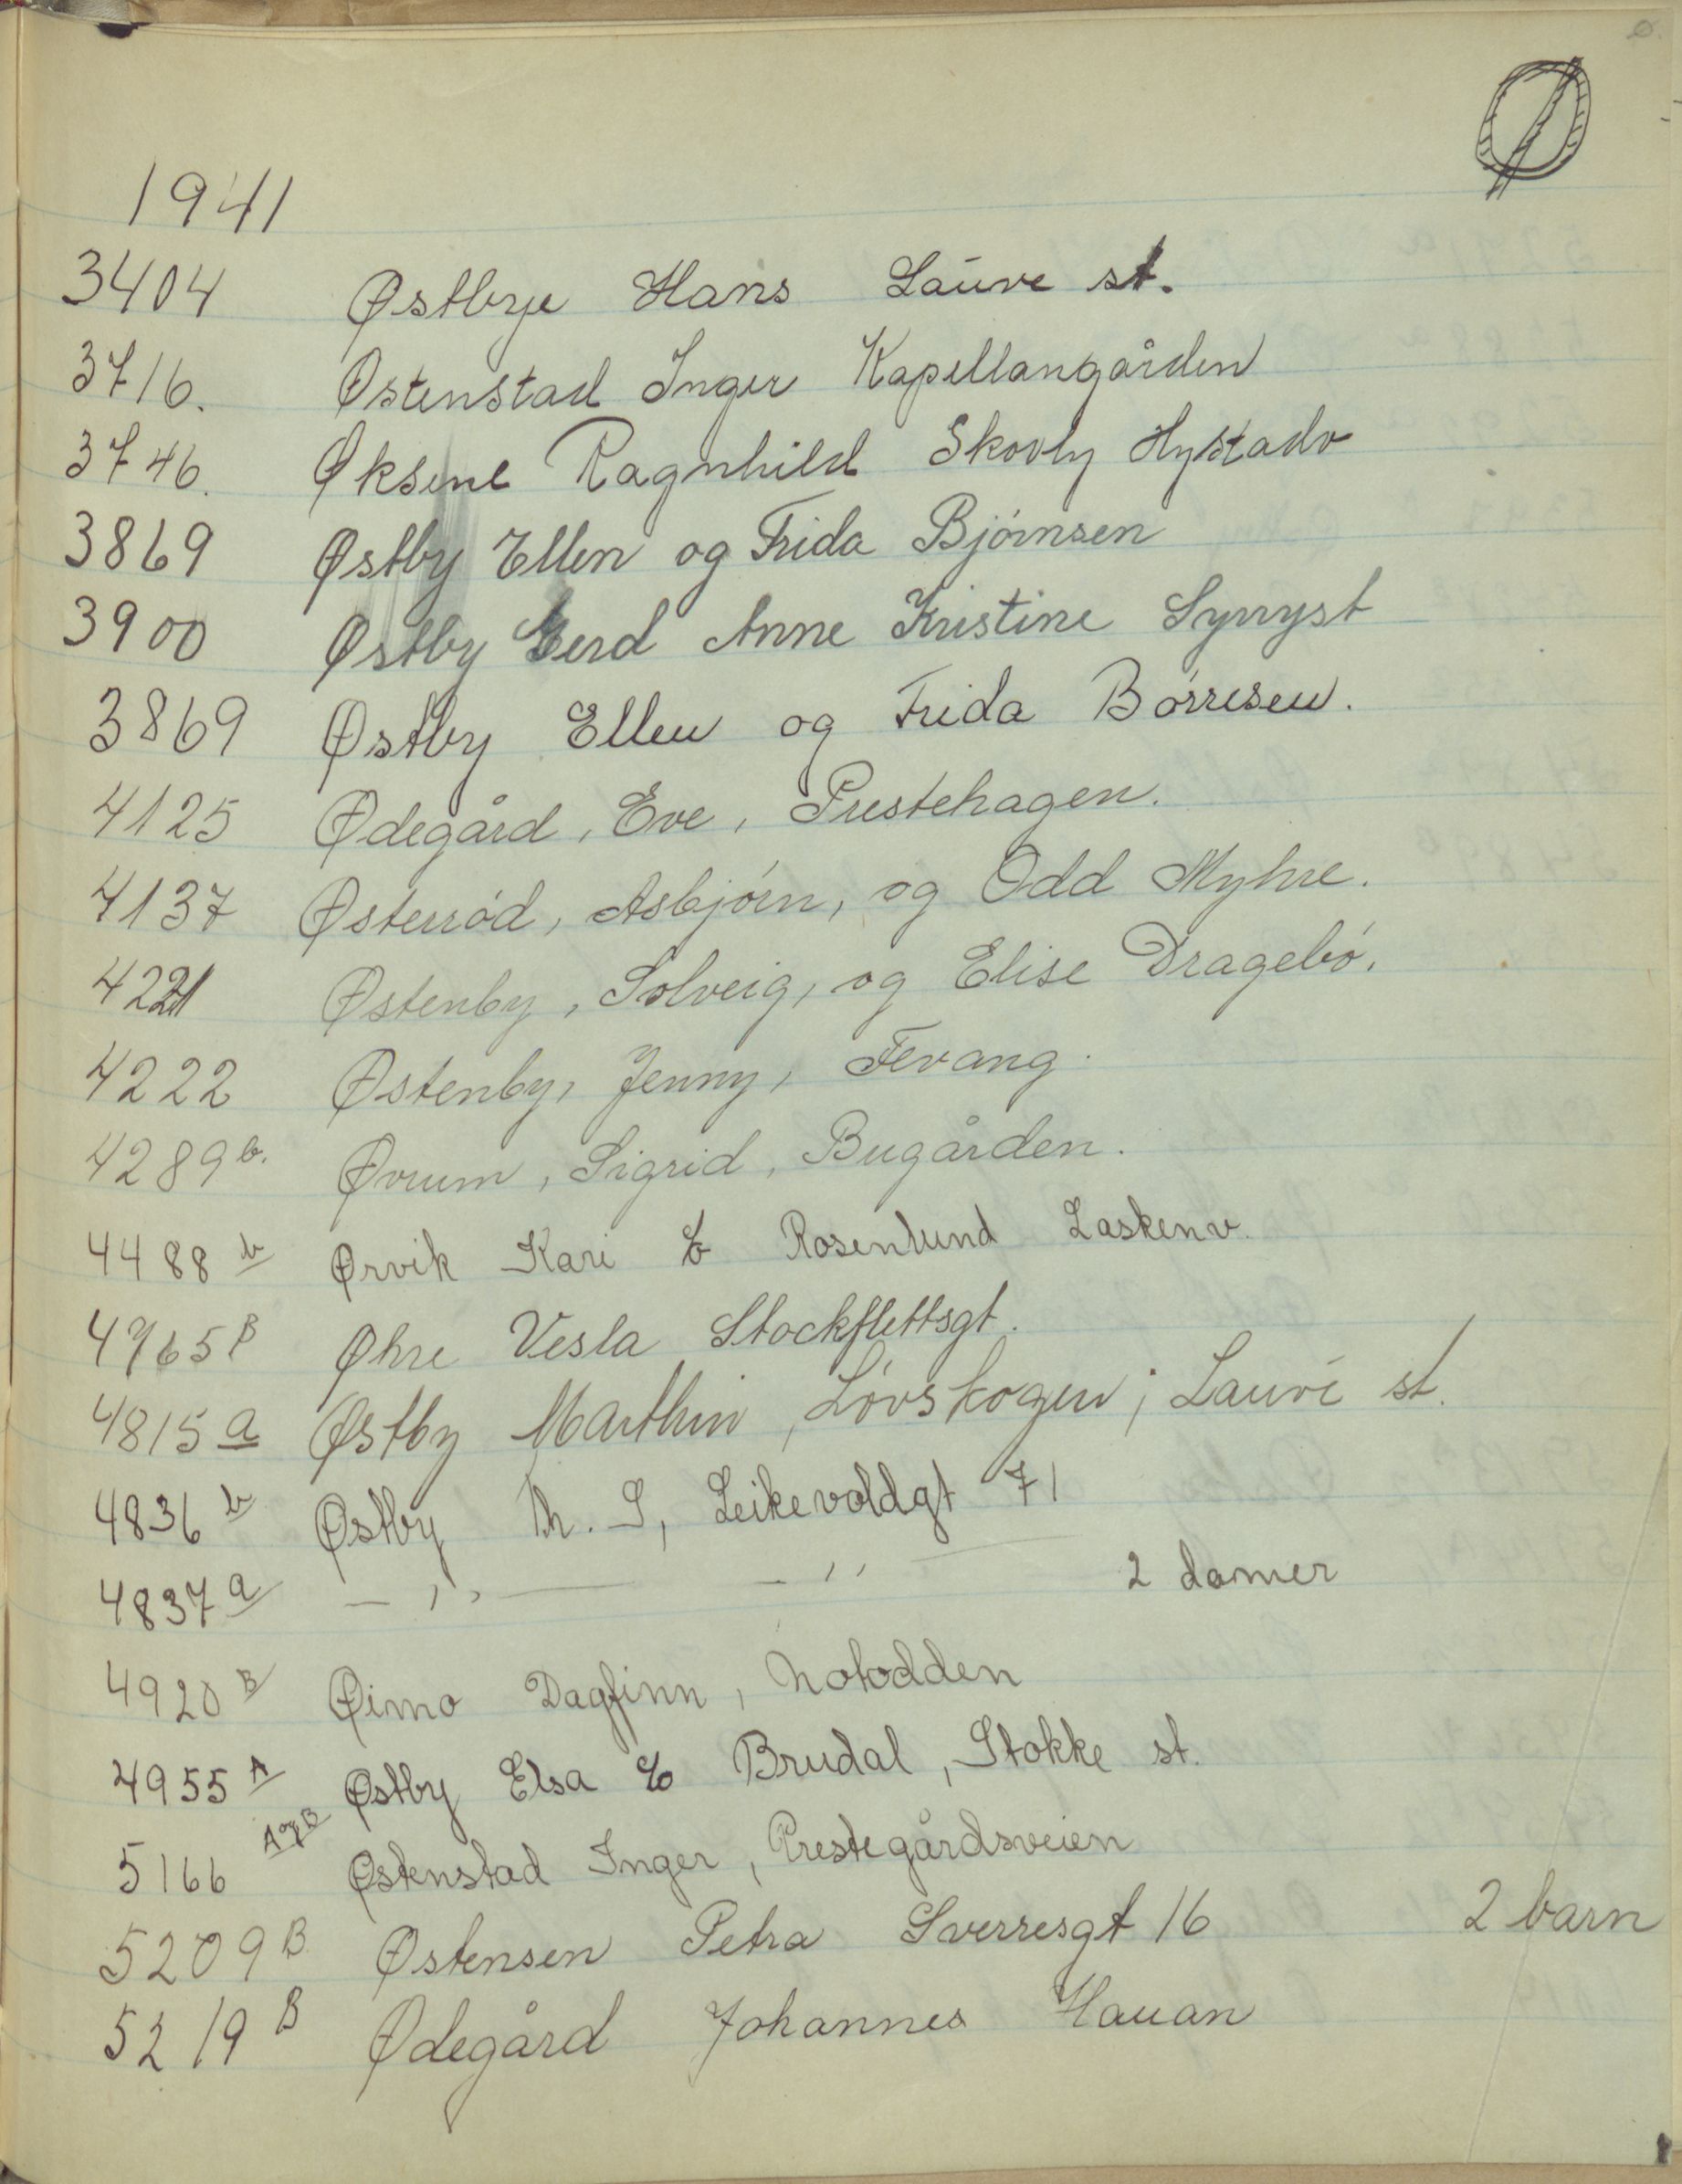 Ø
1941
3404 Østbye Hans Lauve st.
3716. Østenstad Inger Kapellangården
3746. Øksene Ragnhild Skovly Hystadv
3869 Østby Ellen og Frida Bjørnsen
3900 Østby Gerd Anne Kristine Synnyst
3869 Østby Ellen og Frida Børresen.
4125 Ødegård, Eve, Prestehagen.
4137 Østerrød, Asbjørn, og Odd Myhre.
4221 Østenby, Solveig, og Elise Dragebø.
4222 Østenby, Jenny, Fevang.
4289 b. Øvrum, Sigrid, Bugården.
4488 b Ørvik Kari c/o Rosenlund Laskenv.
4765 B Øhre Vesla Stockflettsgt.
4815 a Østby Marthin, Løvskogen; Lauve st.
4836 b Østby Th. S, Leikevoldgt 71
4837 a — ,, — — ,, 2 damer
4920 B Øimo Dagfinn, Notodden
4955 A Østby Elsa c/o Brudal, Stokke st.
5166 A og B Østenstad Inger, Prestegårdsveien
5209 B Østensen Petra Sverresgt 16 2 barn
5219 B Ødegård Johannes Hauan